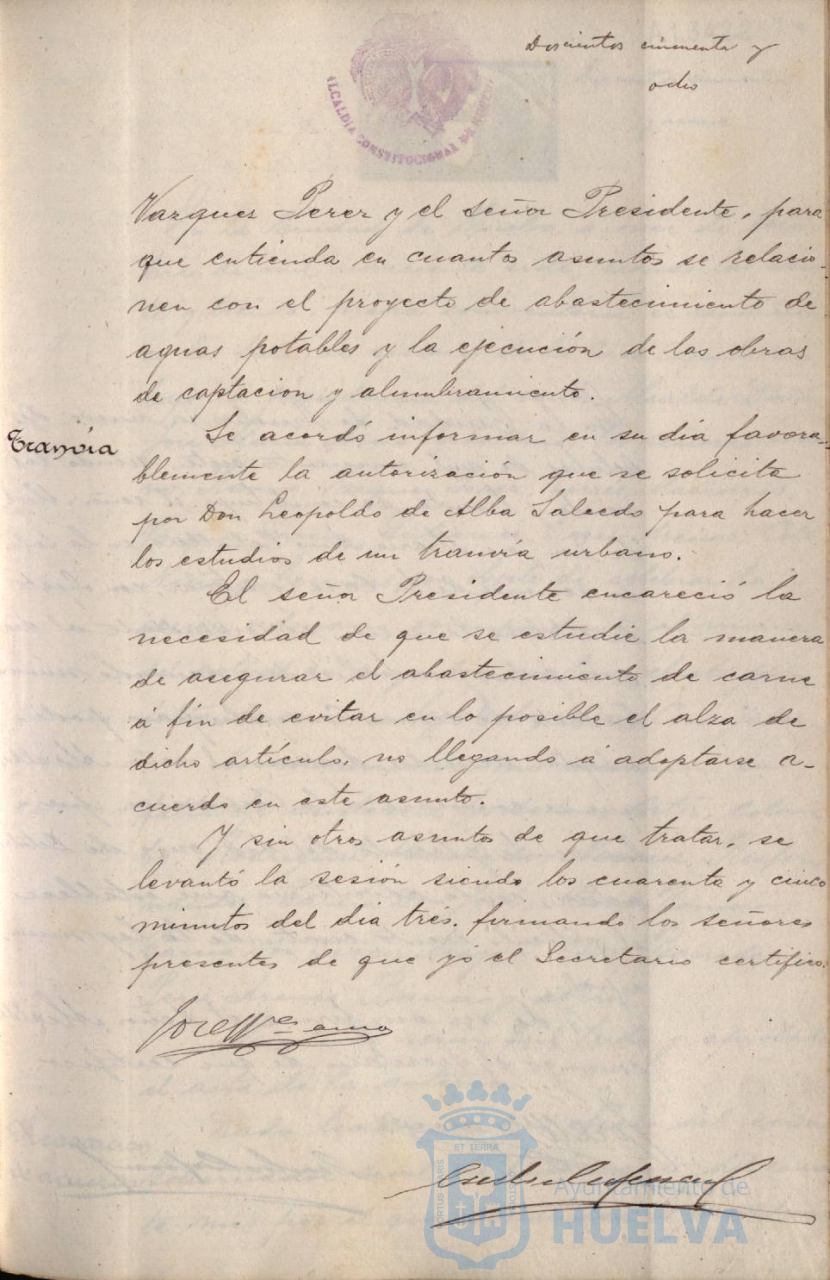 Doscientos cincuenta y
ocho
ALCALDIA CONSTITUCIONAL DE HUELVA
Vazquez Perez y el señor Presidente, para
que entienda en cuantos asuntos se relacio-
nen con el proyecto de abastecimiento de
aguas potables y la ejecución de las obras
de captacion y alumbramiento.
Tranvía
Se acordó informar en su dia favora-
blemente la autorización que se solicita
por Don Leopoldo de Alba Salcedo para hacer
los estudios de un tranvía urbano.
El señor Presidente encareció la
necesidad de que se estudie la manera
de asegurar el abastecimiento de carne
á fín de evitar en lo posible el alza de
dicho artículo, no llegando á adoptarse a-
cuerdo en este asunto.
Y sin otros asuntos de que tratar, se
levantó la sesión siendo los cuarenta y cinco
minutos del dia trés, firmando los señores
presentes de que yó el Secretario certifico.
ET TERRA
PORTUS MARIS
CUSTODIA
Ayuntamiento de
HUELVA